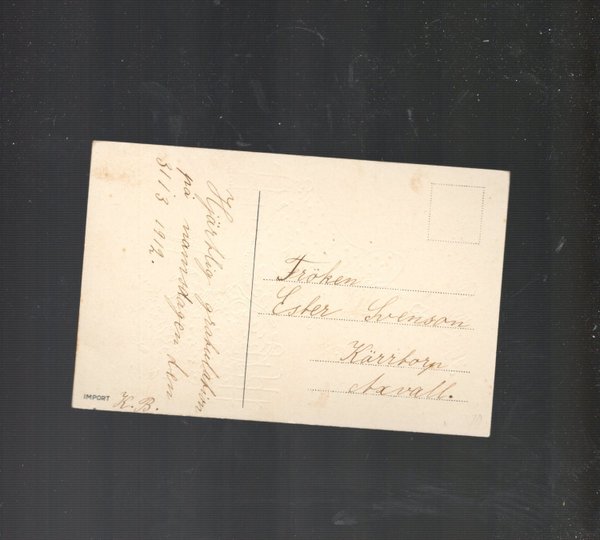 Hjärtlig gratulation
på namnsdagen den
31 13 1912.
K. B.
IMPORT
Fröken
Ester Svenson
Kärrtorp
Axvall.